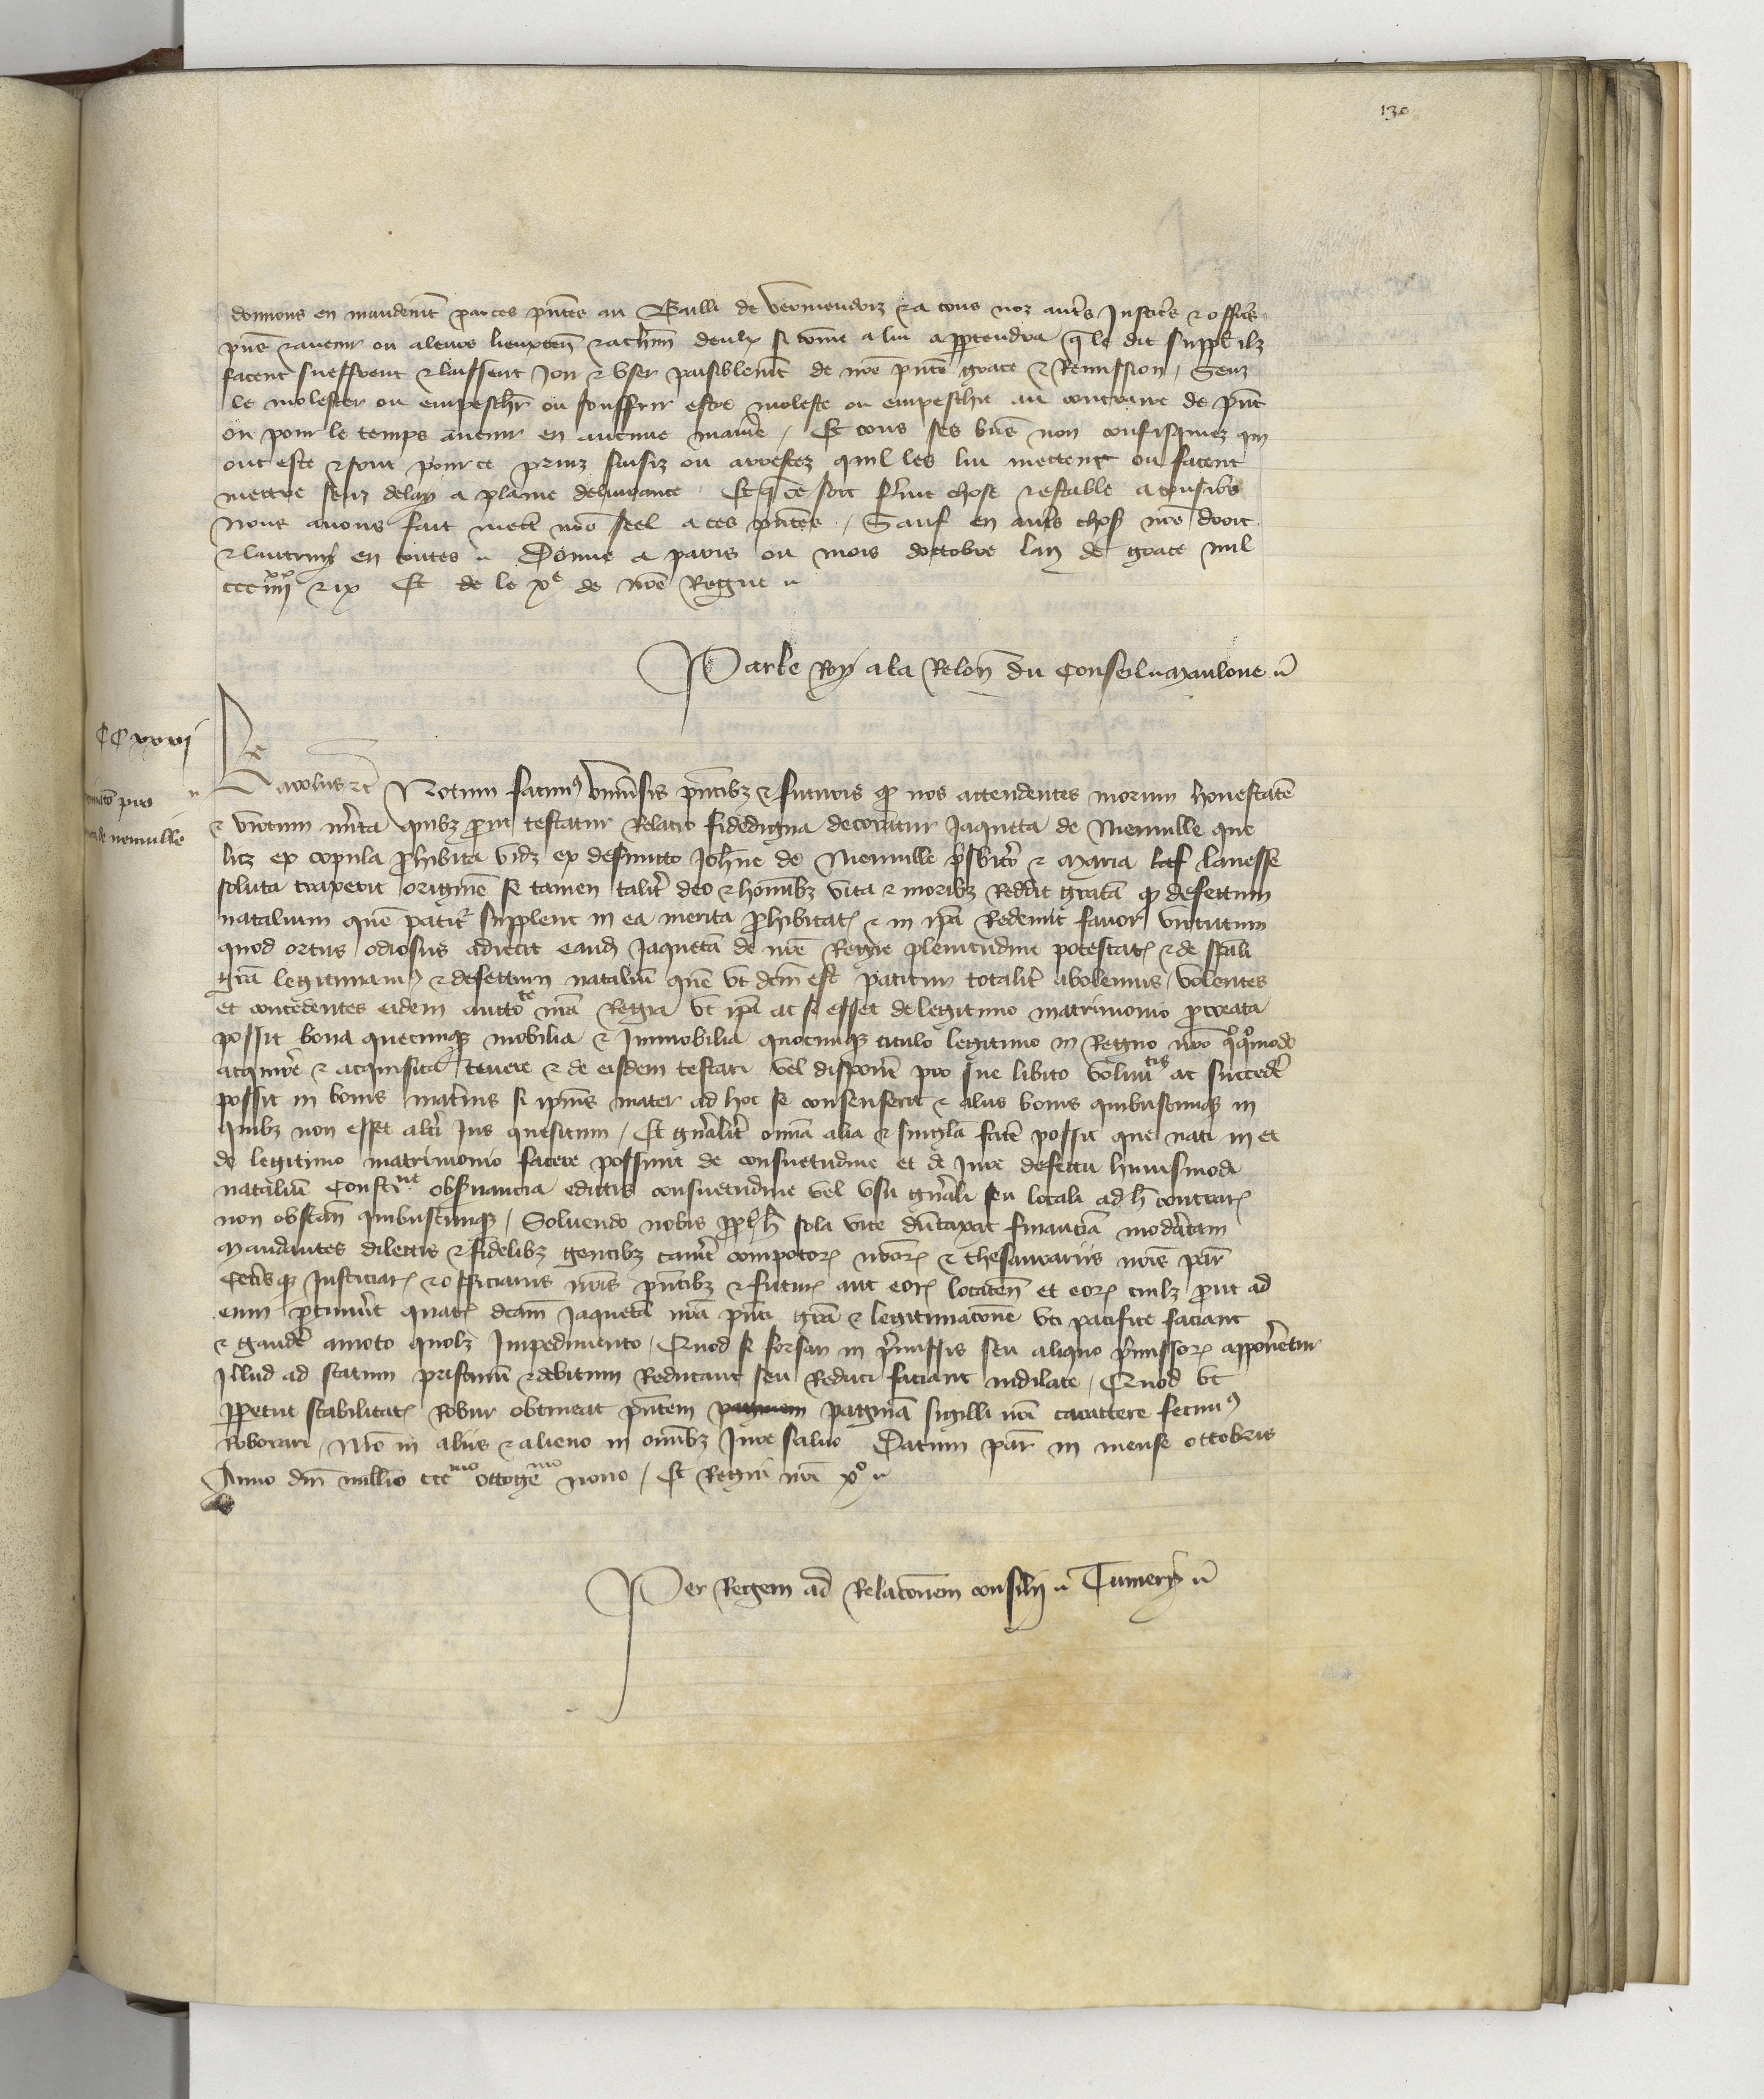 130
donnons en mandemt par ces pntes au Bailli de vermendois & a tous noz autrs Justicrs & officrs
pns & avenir ou a leurs lieuxten & a chun deulx si come a lui appartendra q le dit suppl ilz
facent sueffrent & laissent Joir & vser paisiblemt de nre pnte grace & Remission / Senz
le molester ou empeschr ou souffrir estre moleste ou empeschie au contraire de pnt
ou pour le temps avenir en aucune manie / Et tous ses bns non confisquez qui
ont este & sont pour ce prinz saisiz ou arrestez quil les lui mettent ou facent
mettre senz delay a plaine delivrance . Et q ce soit ferme chose & estable a tousjrs
Nous avons fait mettr nre seel a ces pntes . Sauf en autrs choses nre droit
& lautruy en toutes . Donne a paris ou mois doctobre lan de grace mil
ccc iiiixx & ix Et de le xe de nre Regne
Par le Roy a la Relon du Conseil Mauloue
CC xxxvi
Karolus etc Notum facimus vniusis pntibz & futuris q nos attendentes morum honestate
de nemuille
& virtutum mrita quibz prout testatur Relatio fidedigna decoratur Jaqueta de Nemuille que
licz ex copula prohibita vidz ex defuncto Johne de Nemuille prsbitro & Maria laf lanesse
soluta traxerit origine se tamen talitr deo & homibz vita & moribz Reddit grata q defectum
natalium que patitr supplent in ea merita prohibitat & in ipa Redemit favor virtutum
quod ortus odiosus adiecit eand Jaqueta de nre Regie plenitudine potestat & de spali
gra legitimamus & defectum nataliu que vt dcm est patitur totalitr abolemus / volentes
et concedentes eidem auctote nra Regia vt ipa ac si esset de legitimo matrimonio procreata
possit bona quecumqz mobilia & Immobilia quocumqz titulo legitimo in Regno nro quoquomodo
acquire & acquisita tenere & de eisdem testari vel disponre pro sue libito voluntis ac succedre
possit in bonis matrnis si ipius mater ad hoc se consenserit & aliis bonis quibuscumqz in
quibz non esset altri Jus quesitum / Et gnralitr omia alia & singla facre possit que nati in et
de legitimo matrimonio facere possunt de consuetudine et de Jure defectu huiusmodi
nataliu Constne obsruancia edictis consuetudine vel vsu gnrali seu locali ad h contrar
non obstan quibuscumqz / Soluendo nobis pp h sola vice dutaxat financia modratam
Mandantes dilectis & fidelibz gentibz camre compotor nror & thesaurariis nris par
Cetrisqz Justiciar & officiariis nris pntibz & futur aut eor locaten et eor cuilz prout ad
eum prtinurit quatr dcam Jaqueta nra pnti gra & legitimacone vti pacifice faciant
& gaudre amoto quolz Impedimento . Quod si forsan in prmissis seu aliquo prmissor apponretur
Illud ad statum pristinu & debitum Reducant seu Reduci faciant indilate . Quod vt
ppetue stabilitat Robur obtineat pntem paginam pagina sigilli nri caractere fecimus
Roborari . Nro in aliis & alieno in omibz Jure salvo Datum par in mense octobris
Anno dni millio cccmo octogemo nono / Et Regni nri xo
Per Regem ad Relaconem consilij Tumery